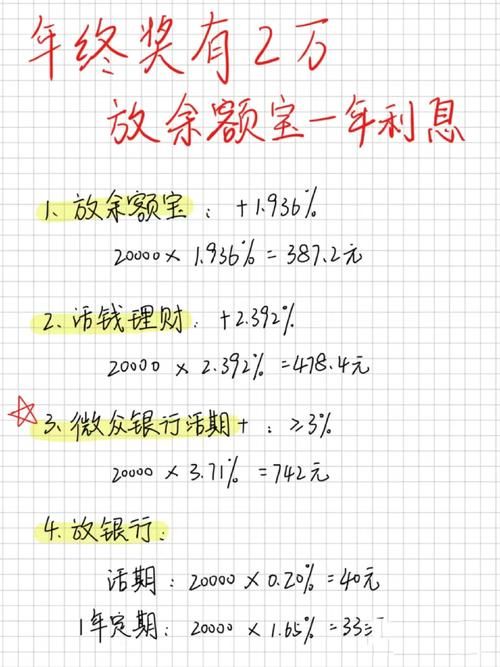 年终奖有2万
放余额宝一年利息
1. 放余额宝: +1.936%
20000 × 1.936% = 387.2元
2. 活钱理财: +2.392%
20000 × 2.392% = 478.4元
☆3. 微众银行活期+ : ≥3%
20000 × 3.71% = 742元
4. 放银行:
活期: 20000 × 0.20% = 40元
1年定期: 20000 × 1.65% = 33